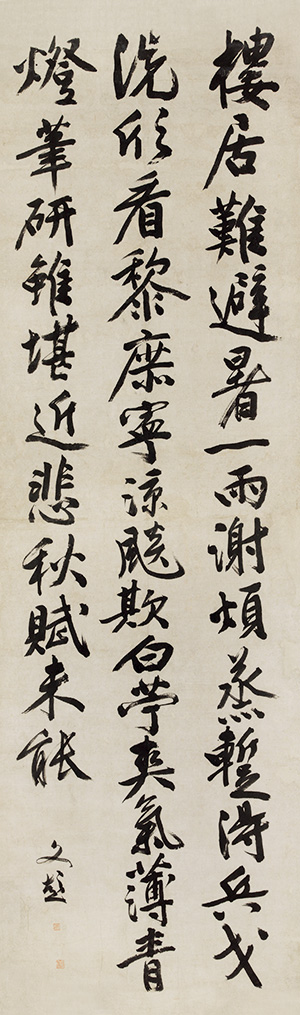 樓居難避暑一雨謝煩蒸暫得兵戈
洗欣看黎庶寧涼飈欺白苧爽氣薄青
燈筆研雖堪近悲秋賦未能